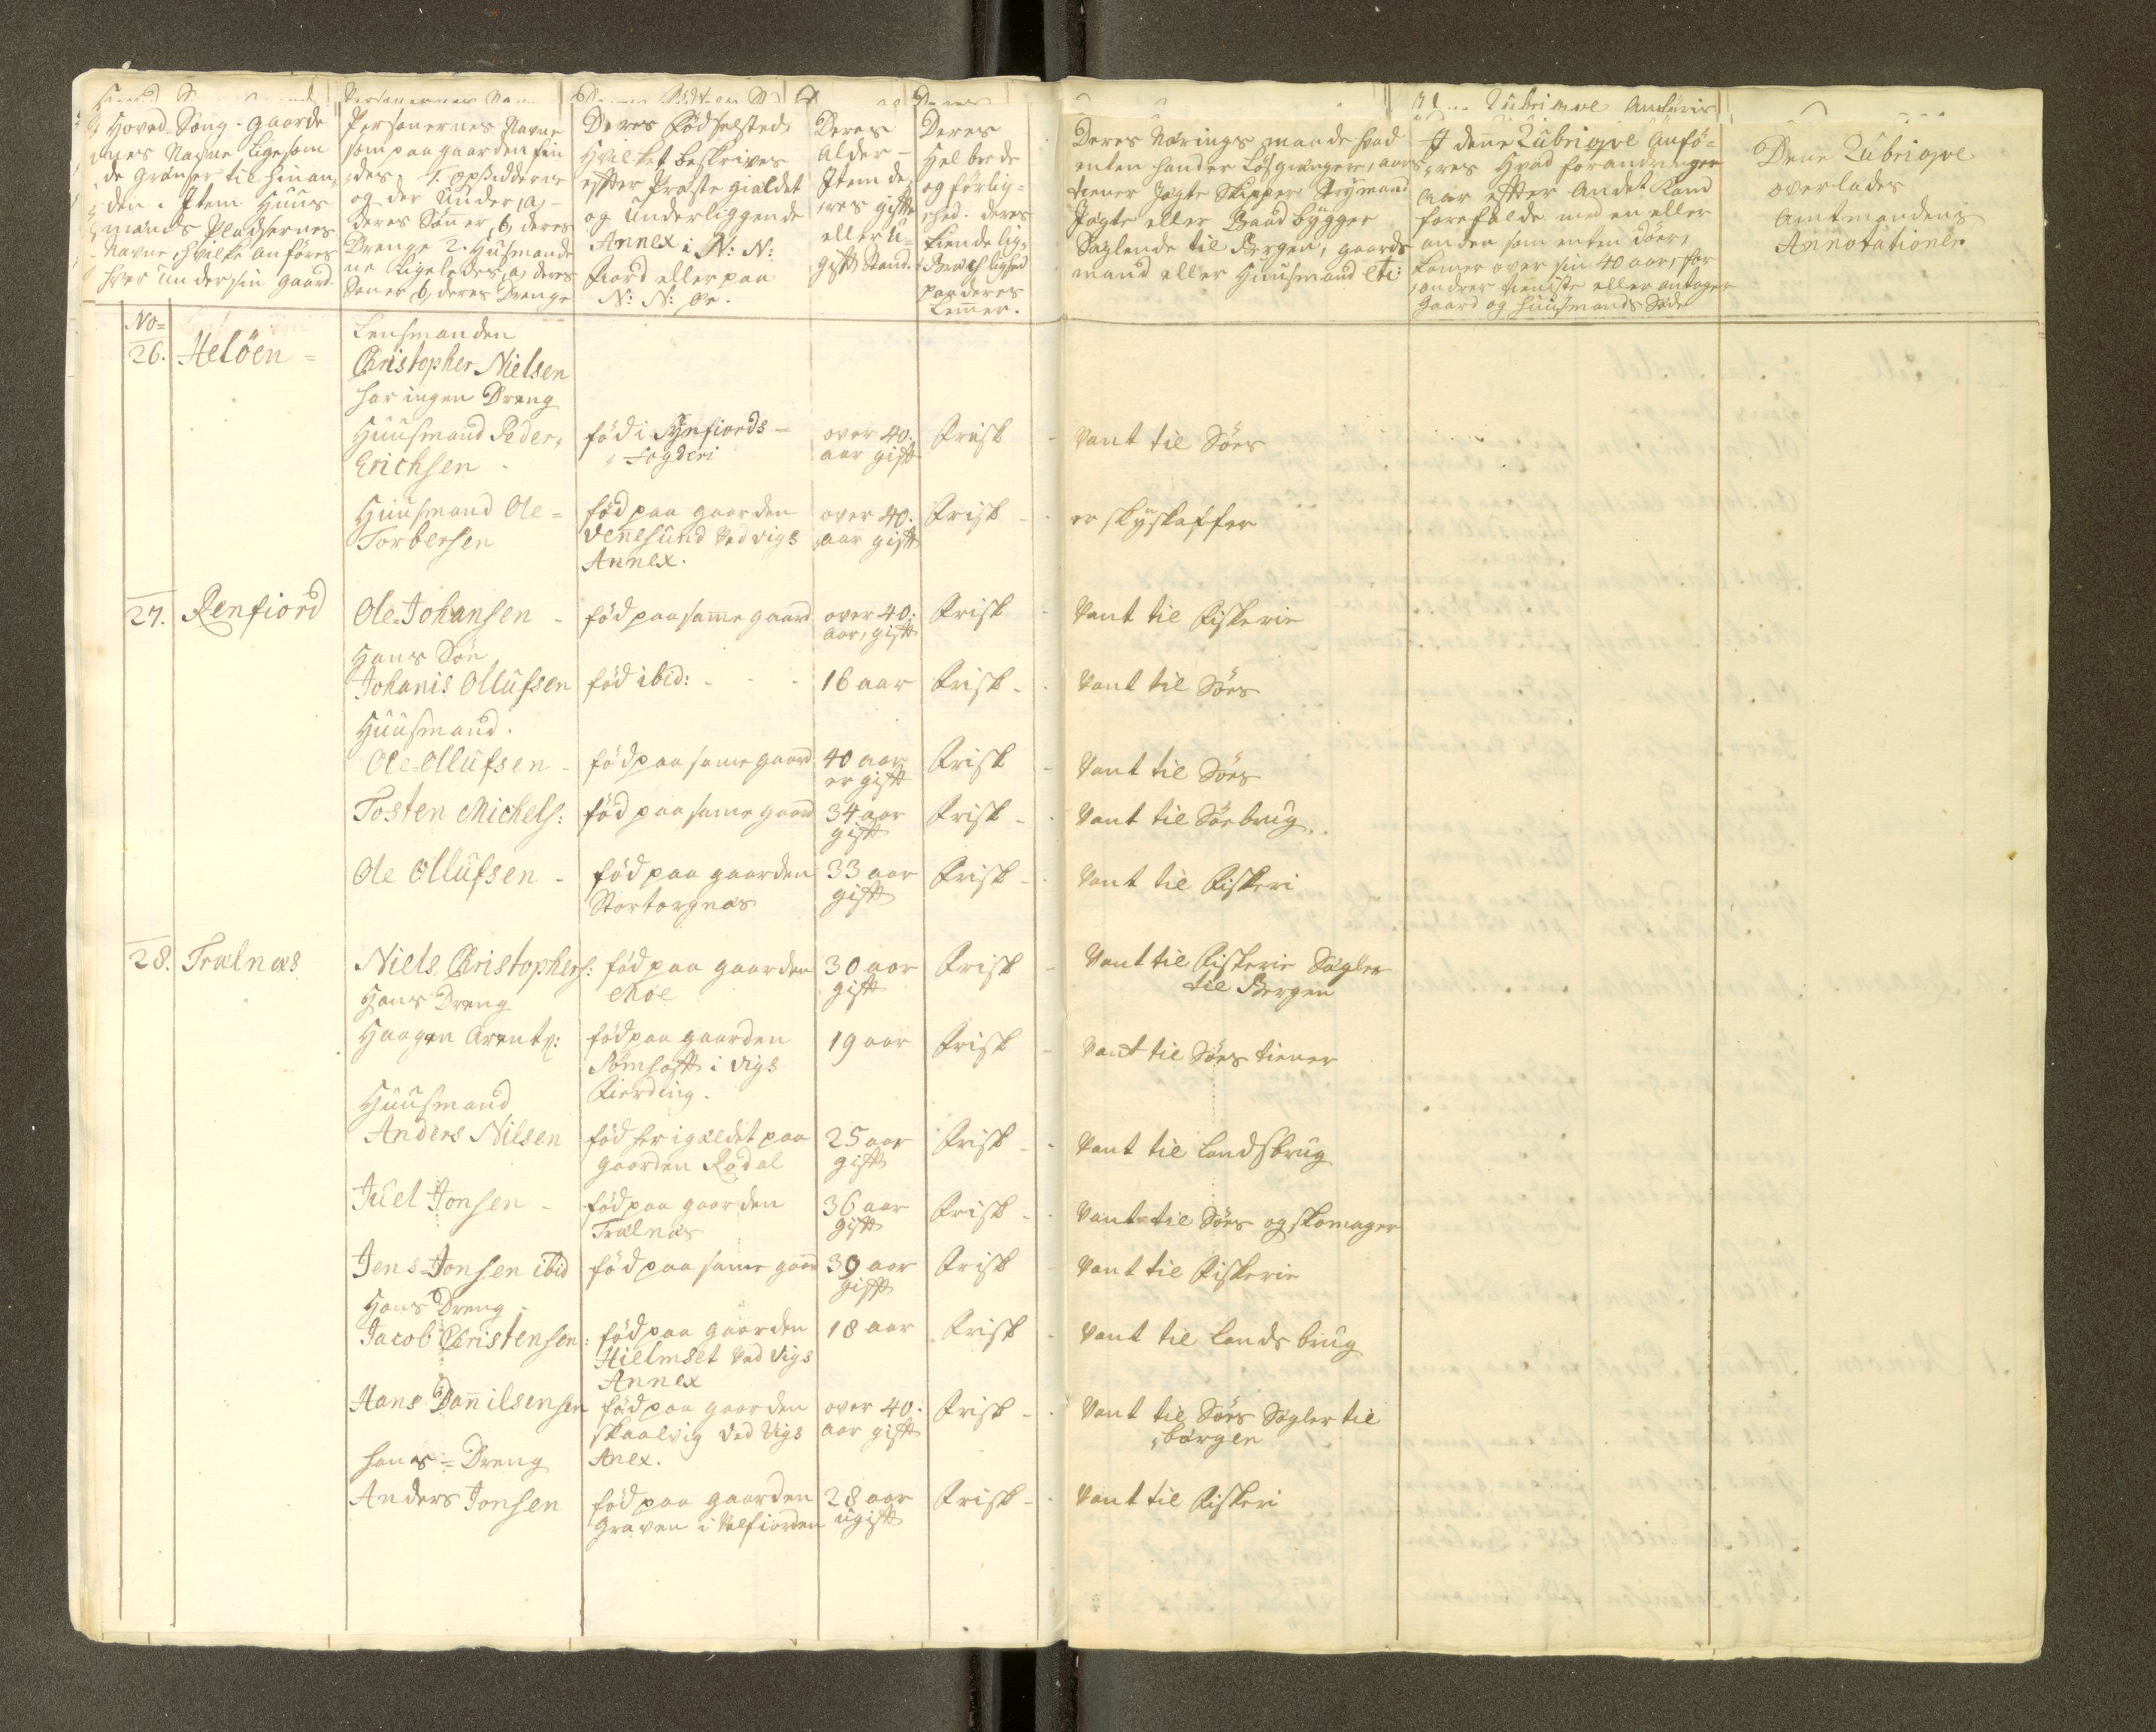 Hoved Song-Gaarde
nes Navne ligesom
de grænser til hinan-
den. Item Huus
mands Pladsernes
Navne, hvilke anføres
hver under sin gaard.
Personernes Navne
som paa gaarden fin
des, 1. opsidderne
og der under, a,
deres Søner, b, deres
Drenge 2. Huusmænde
ne ligeledes, a, deres
Søner b, deres Drenge
Deres Fødselsted,
Hvilket beskrives
efter Præstegieldet
og Underliggende
Annex i N: N:
Fiord eller paa
N: N: øe.
Deres
Alder
Item de
res gifte
eller U-
gift Stand.
Deres
Helbrede
og førlig-
hed. deres
kiendelig
Bræchlighed
paa deres
Lemer.
Deres Nærings maade hvad
enten hand er Løsgiænger,
tiener Jægte Skipper Styrmand
Jægte eller Baad bygger
Seglende til Bergen, gaards
mand eller Huusmand etc:
I denne Rubriqve Anfø-
res Hvad forandringer
Aar efter Andet kand
forefalde med en eller
anden som enten døer,
komer over sin 40 aar, for
andrer tieniste eller antager
Gaard og Huusmands Sæde
Dene Rubriqve
overlades
Amtmandens
Annotationer
No=
26. Heløen =
Lensmanden
Christopher Nielsen
har ingen Dreng
Huusmand Peder Erichsen
fød i Synfiords Fogderi
over 40. aar gift
Frisk
Vant til Søes
Huusmand Ole= Torbersen
fød paa gaarden Venesund Ved vigs Annex.
over 40. aar gift
Frisk
er skyskaffer
27. Renfiord
Ole Johansen
fød paa samme gaard
over 40: aar, gift
Frisk
Vant til Fiskerie
Hans Søn
Johanis Ollufsen
fød ibid:
16 aar
Frisk
Vant til Søes
Huusmand.
Ole Ollufsen
fød paa same gaard
40 aar er gift
Frisk
Vant til Søes
Tosten Michels:
fød paa same gaard
34 aar gift
Frisk
Vant til Søebrug
Ole Ollufsen
fød paa gaarden Stortorgnæs
33 aar gift
Frisk
Vant til Fiskeri
28. Trælnæs
Niels Christophers:
fød paa gaarden Moe
30 aar gift
Frisk
Vant til Fiskerie Segler
til Bergen
Hans Dreng
Haagen Arents:
fød paa gaarden Sømhoft i Vigs Fierding.
19 aar
Frisk
Vant til Søes tiener
Huusmand
Anders Nilsen
fød her i gieldet paa gaarden Rødal
25 aar gift
Frisk
Vant til Landsbrug
Juel Jonsen
fød paa gaarden Trælnæs
36 aar gift
Frisk
Vant til Søes og skomager
Jens Jonsen ibid
fød paa same gaard
39 aar gift
Frisk
Vant til Fiskerie
Hans Dreng
Jacob Christensen:
fød paa gaarden Hielmset Ved Vigs Annex
18 aar
Frisk
Vant til Lands brug
Hans Danilsensen
fød paa gaarden skaalvig Ved Vigs Anex.
over 40. aar gift
Frisk
Vant til Søes Segler til
børgen
hans = Dreng
Anders Jonsen
fød paa gaarden Graven i Velfiorden
28 aar ugift
Frisk
Vant til Fiskeri